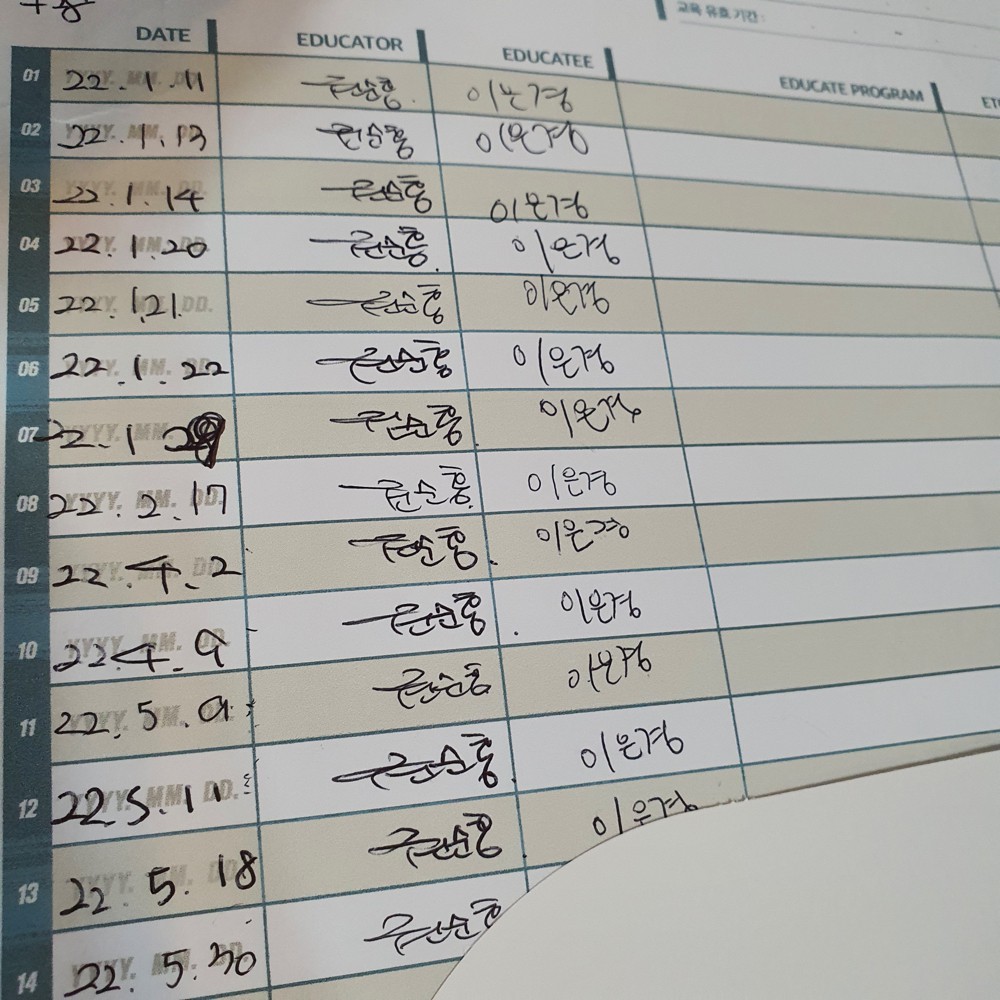 교육 유효 기간 :
DATE EDUCATOR EDUCATEE EDUCATE PROGRAM
01 22.1.11 권순홍. 이은경
02 22.1.13 권순홍 이은경
03 22.1.14 권순홍 이은경
04 22.1.20 권순홍. 이은경
05 22.1.21. 권순홍 이은경
06 22.1.22 권순홍 이은경
07 22.1 권순홍. 이은경
08 22.2.17 권순홍. 이은경
09 22.4.2 권순홍. 이은경
10 22.4.9 권순홍. 이은경
11 22.5.9 권순홍 이은경
12 22.5.11 권순홍. 이은경
13 22.5.18 권순홍 이은경
14 22.5.30 권순홍